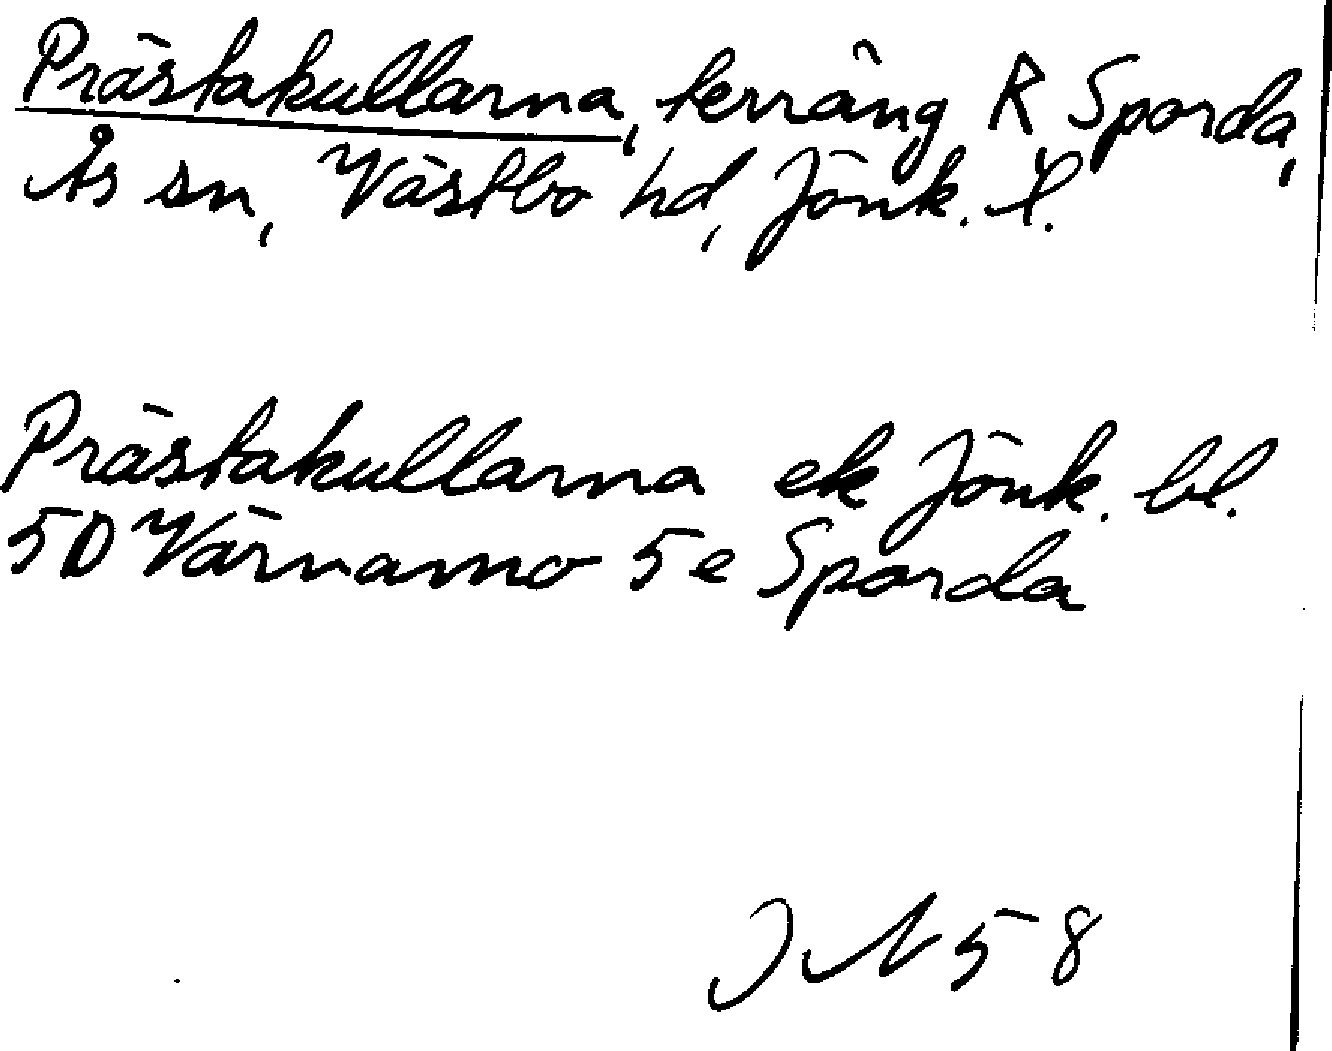 Prästakullarna, terräng R Sporda,
Ås sn, Västbo hd, Jönk. l.
Prästakullarna ek Jönk. bl.
5D Värnamo 5e Sporda
58